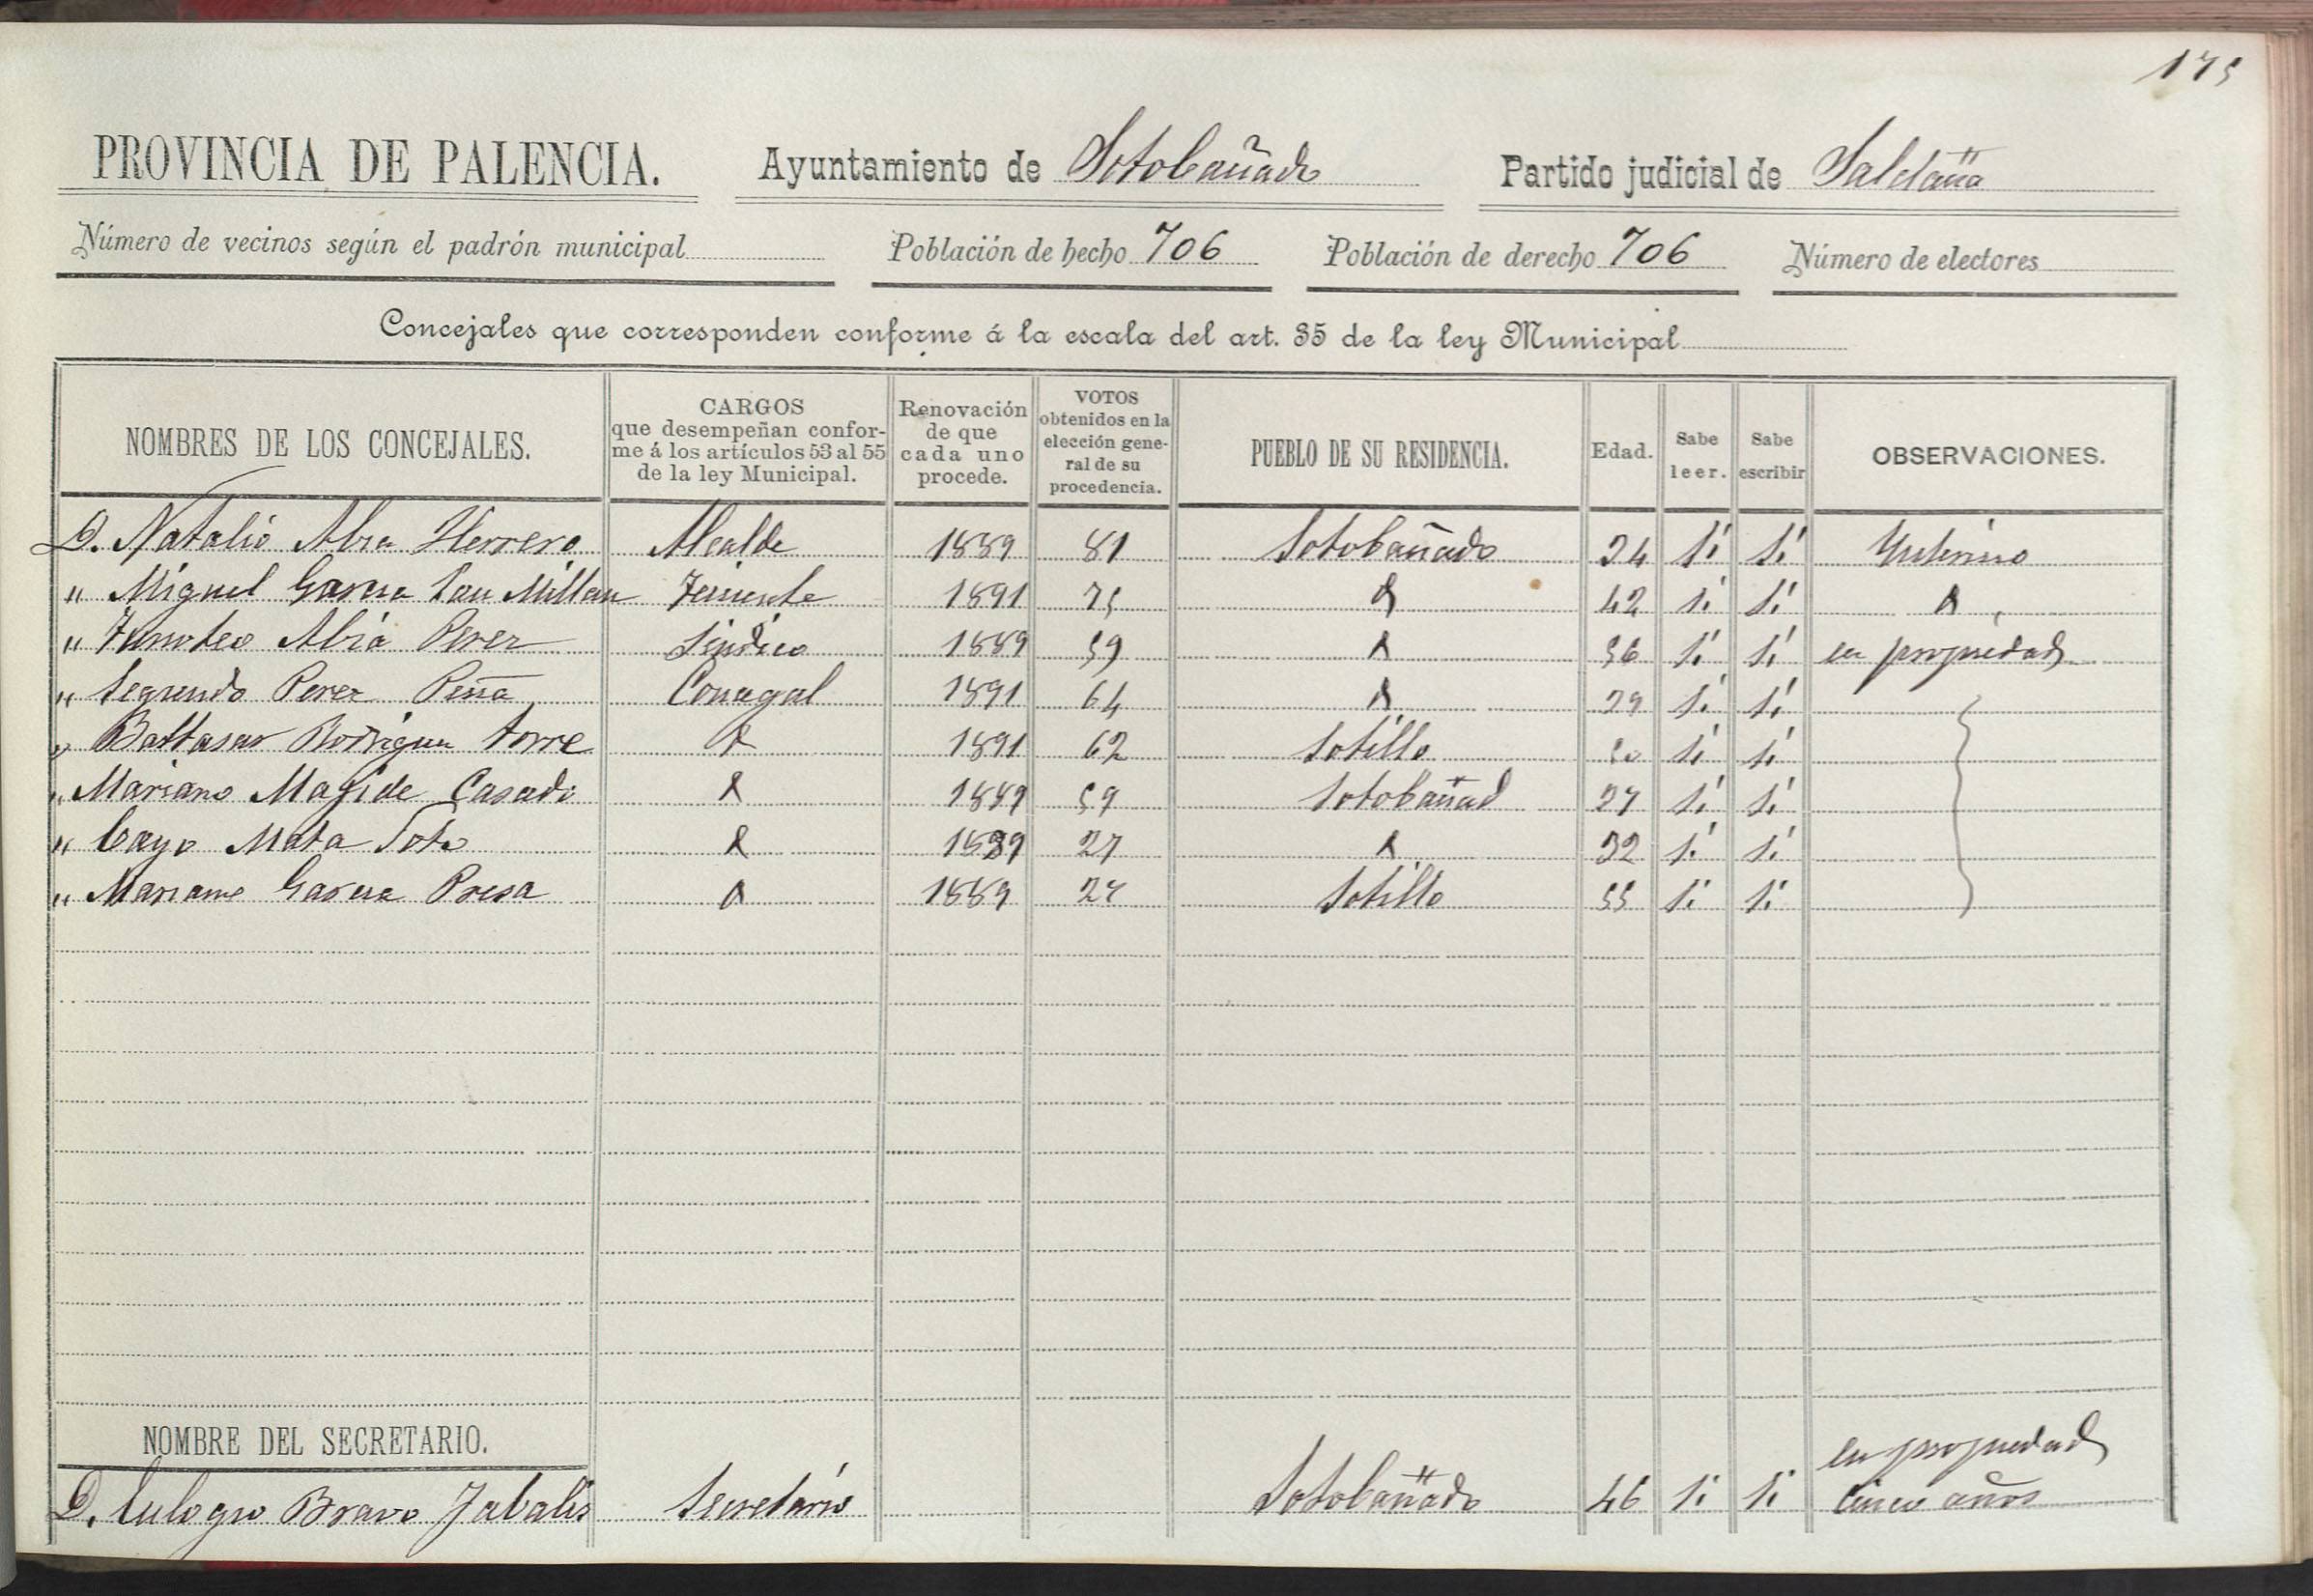 175
PROVINCIA DE PALENCIA. Ayuntamiento de Sotobañado Partido judicial de Saldaña
Número de vecinos según el padrón municipal Población de hecho 706 Población de derecho 706 Número de electores
Concejales que corresponden conforme á la escala del art. 35 de la ley Municipal
NOMBRES DE LOS CONCEJALES. CARGOS que desempeñan confor-me á los artículos 53 al 55 de la ley Municipal. Renovación de que cada uno procede. VOTOS obtenidos en la elección gene-ral de su procedencia. PUEBLO DE SU RESIDENCIA. Edad. Sabe leer. Sabe escribir OBSERVACIONES.
D. Natalio Abia Herrero Alcalde 1889 81 Sotobañado 34 Sí Sí Interino
" Miguel Garcia San Millan Teniente 1891 75 42 Sí Sí
" Timoteo Abia Perez Síndico 1889 59 56 Sí Sí en propiedad
" Segundo Perez Peña Concejal 1891 64 29 Sí Sí
" Baltasar Rodriguez Torre 1891 62 Sotillo 50 Sí Sí
" Mariano Magide Casado 1889 59 Sotobañad 27 Sí Sí
" Cayo Mata Soto 1889 27 32 Sí Sí
" Mariano Garcia Presa 1889 27 Sotillo 55 Sí Sí
NOMBRE DEL SECRETARIO.
D. Eulogio Bravo Jabalís Secretario Sotobañado 46 Sí Sí en propiedad
cinco años